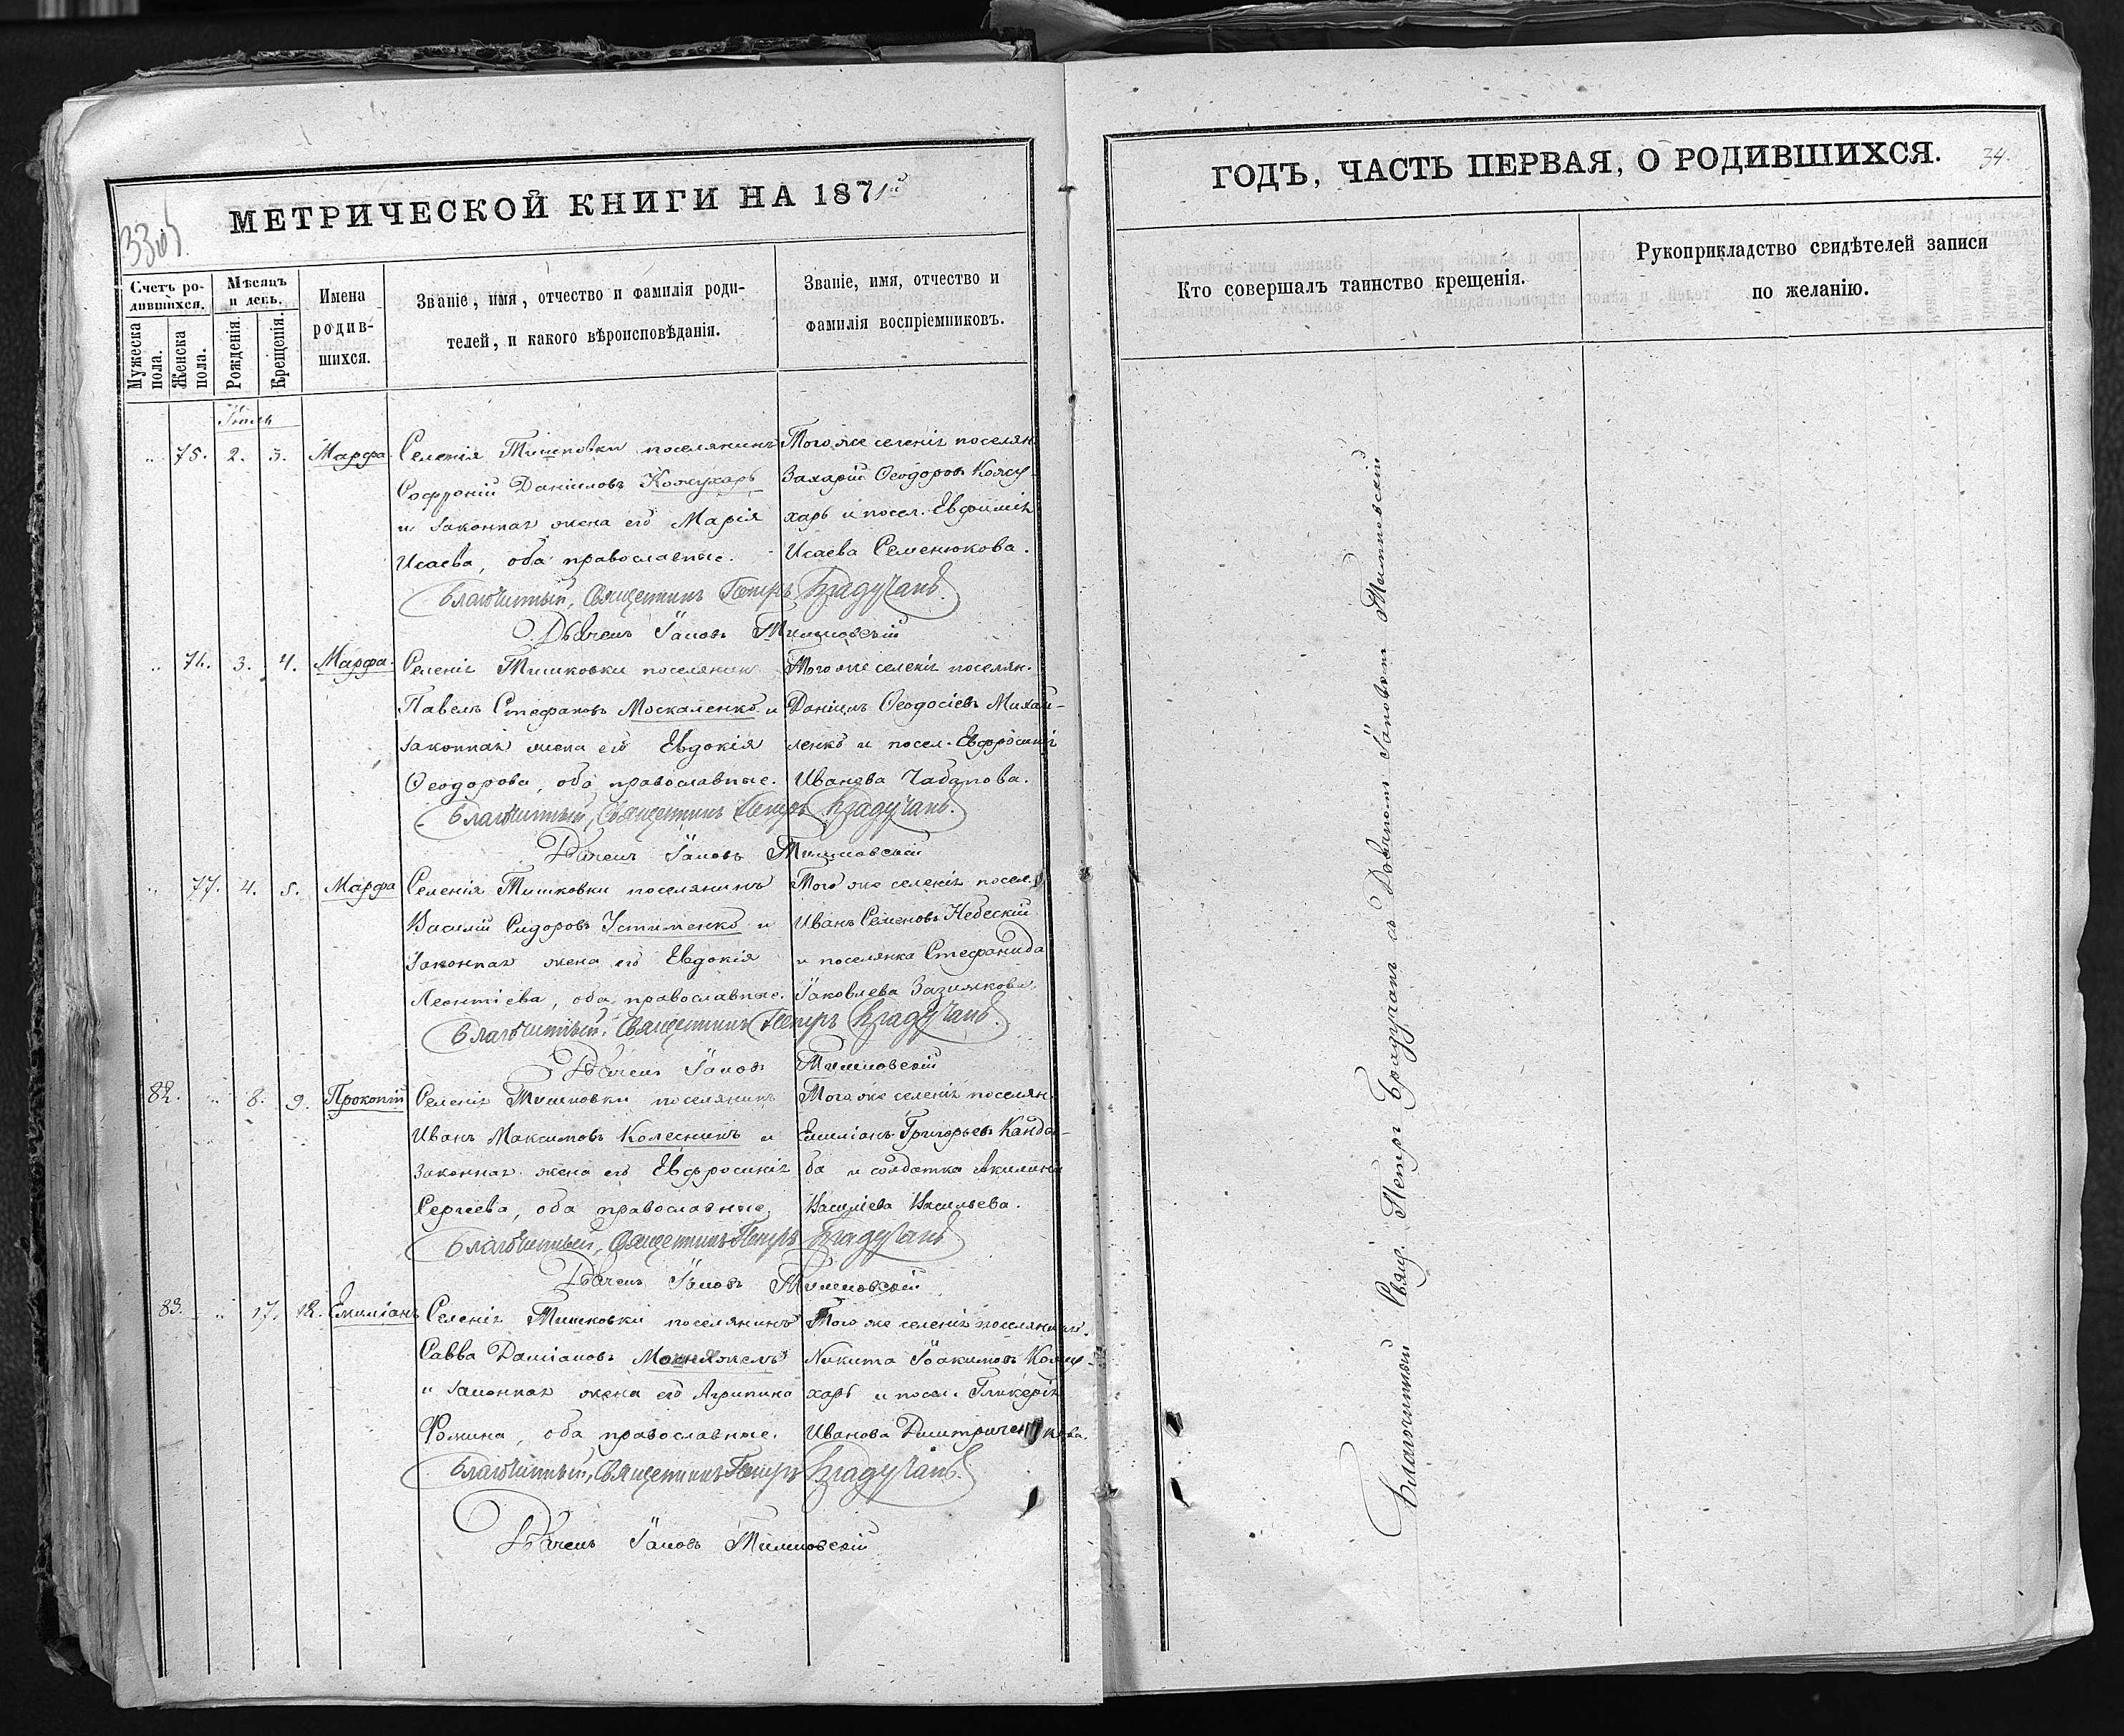 МЕТРИЧЕСКОЙ КНИГИ НА 1871й
Счетъ ро-
дившихся.
Мужеска
пола.
Женска
пола.
Мѣсяцъ
и день.
Рожденія.
Крещенія.
Имена
родив-
шихся.
Званіе, имя, отчество и фамилія роди-
телей, и какого вѣроисповѣданія.
Званіе, имя, отчество и
фамилія воспріемниковъ.
Іюль
„ 75. 2. 3. Марфа
Селенія Тишковки поселянинъ
Софроній Даніиловъ Кожухарь
и законная жена его Марія
Исаева, оба православные.
Того же селенія поселян.
Захарій Ѳеодоровъ Кожу-
харь и посел. Евфимія
Исаева Семенюкова.
Благочинный, Священникъ Петръ Брадучанъ.
Дьячекъ Іаковъ Тишковскій
„ 76. 3. 4. Марфа.
Селенія Тишковки поселянинъ
Павелъ Стефановъ Москаленко и
законная жена его Евдокія
Ѳеодорова, оба православные.
Того же селенія поселян.
Даніилъ Ѳеодосіевъ Михай-
ленко и посел. Евфросинія
Иванова Чабанова.
Благочинный, Священникъ Петръ Брадучанъ.
Дьячекъ Іаковъ Тишковскій
„ 77. 4. 5. Марфа
Селенія Тишковки поселянинъ
Василій Сидоровъ Устименко и
законная жена его Евдокія
Леонтіева, оба православные.
Того же селенія посел.
Иванъ Семеновъ Небескій
и поселянка Стефанида
Іаковлева Зазимкова.
Благочинный, Священникъ Петръ Брадучанъ.
Дьячекъ Іаковъ Тишковскій
82. „ 8. 9. Прокопій
Селенія Тишковки поселянинъ
Иванъ Максимовъ Колесникъ и
законная жена его Евфросинія
Сергіева, оба православные
Того же селенія поселян.
Емиліанъ Григорьевъ Канды-
ба и солдатка Акилина
Василіева Васильева.
Благочинный, Священникъ Петръ Брадучанъ
Дьячекъ Іаковъ Тишковскій
83. „ 17. 18. Емиліанъ
Селенія Тишковки поселянинъ
Савва Даміановъ
и законная жена его Агрипина
Ѳомина, оба православные.
Того же селенія поселянинъ.
Никита Іоакимовъ Кожу-
харь и посел. Гликерія
Иванова Дмитриченкова.
Благочинный, Священникъ Петръ Брадучанъ.
Дьячекъ Іаковъ Тишковскій
ГОДЪ, ЧАСТЬ ПЕРВАЯ, О РОДИВШИХСЯ.
34.
Кто совершалъ таинство крещенія.
Рукоприкладство свидѣтелей записи
по желанію.
Благочинный Свящ. Петръ Брадучанъ съ Дьячкомъ Іаковомъ Тишковскимъ